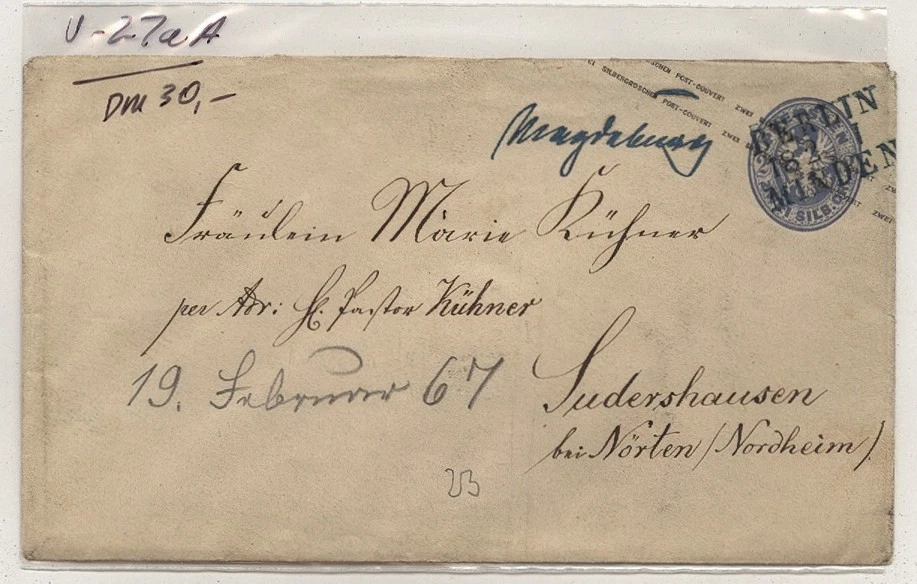 U-27aA
DM 30,-
SILBERGROSCHEN POST-COUVERT ZWEI
SILBERGROSCHEN POST-COUVERT ZWEI
Magdeburg
BERLIN
18 2 I
MINDEN
SILB. GR.
Fräulein Marie Kühner
per Adr: H. Pastor Kühner
19. Februar 67
Sudershausen
bei Nörten (Nordheim)